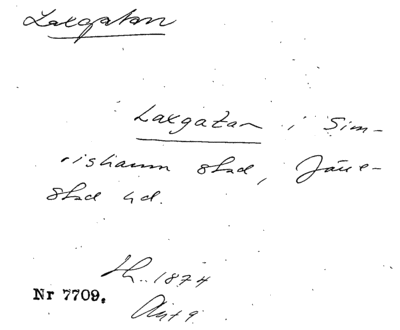 Laxgatan
Laxgatan i Sim-
rishamn stad, Järre-
stad hd.
1874
Nr 7709.